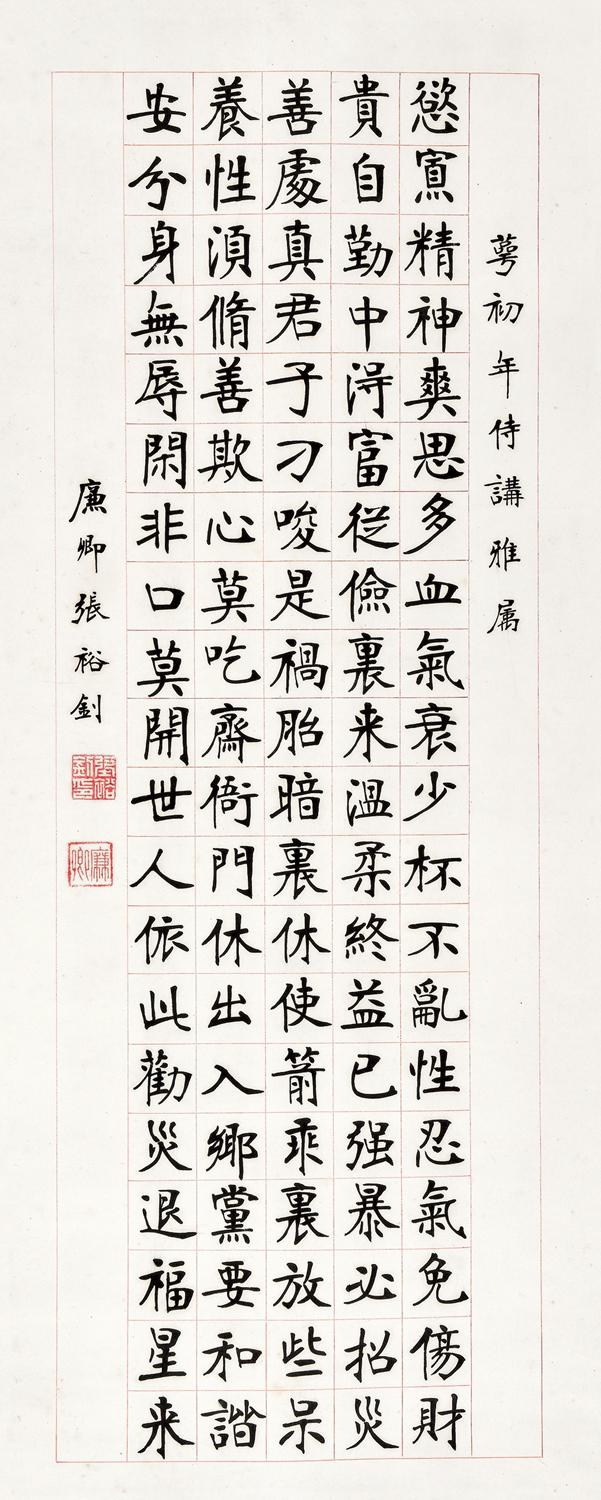 蕚初年侍講雅属
慾寡精神爽思多血氣衰少杯不亂性忍氣免傷財
貴自勤中淂富從儉裏来温柔終益已强暴必招災
善處真君子刁唆是禍胎暗裏休使箭乖裏放些呆
養性湏脩善欺心莫吃齋衙門休出入鄉黨要和諧
安分身無辱閑非口莫開世人依此勸災退福星来
廉卿張裕釗
張裕釗印
廉卿